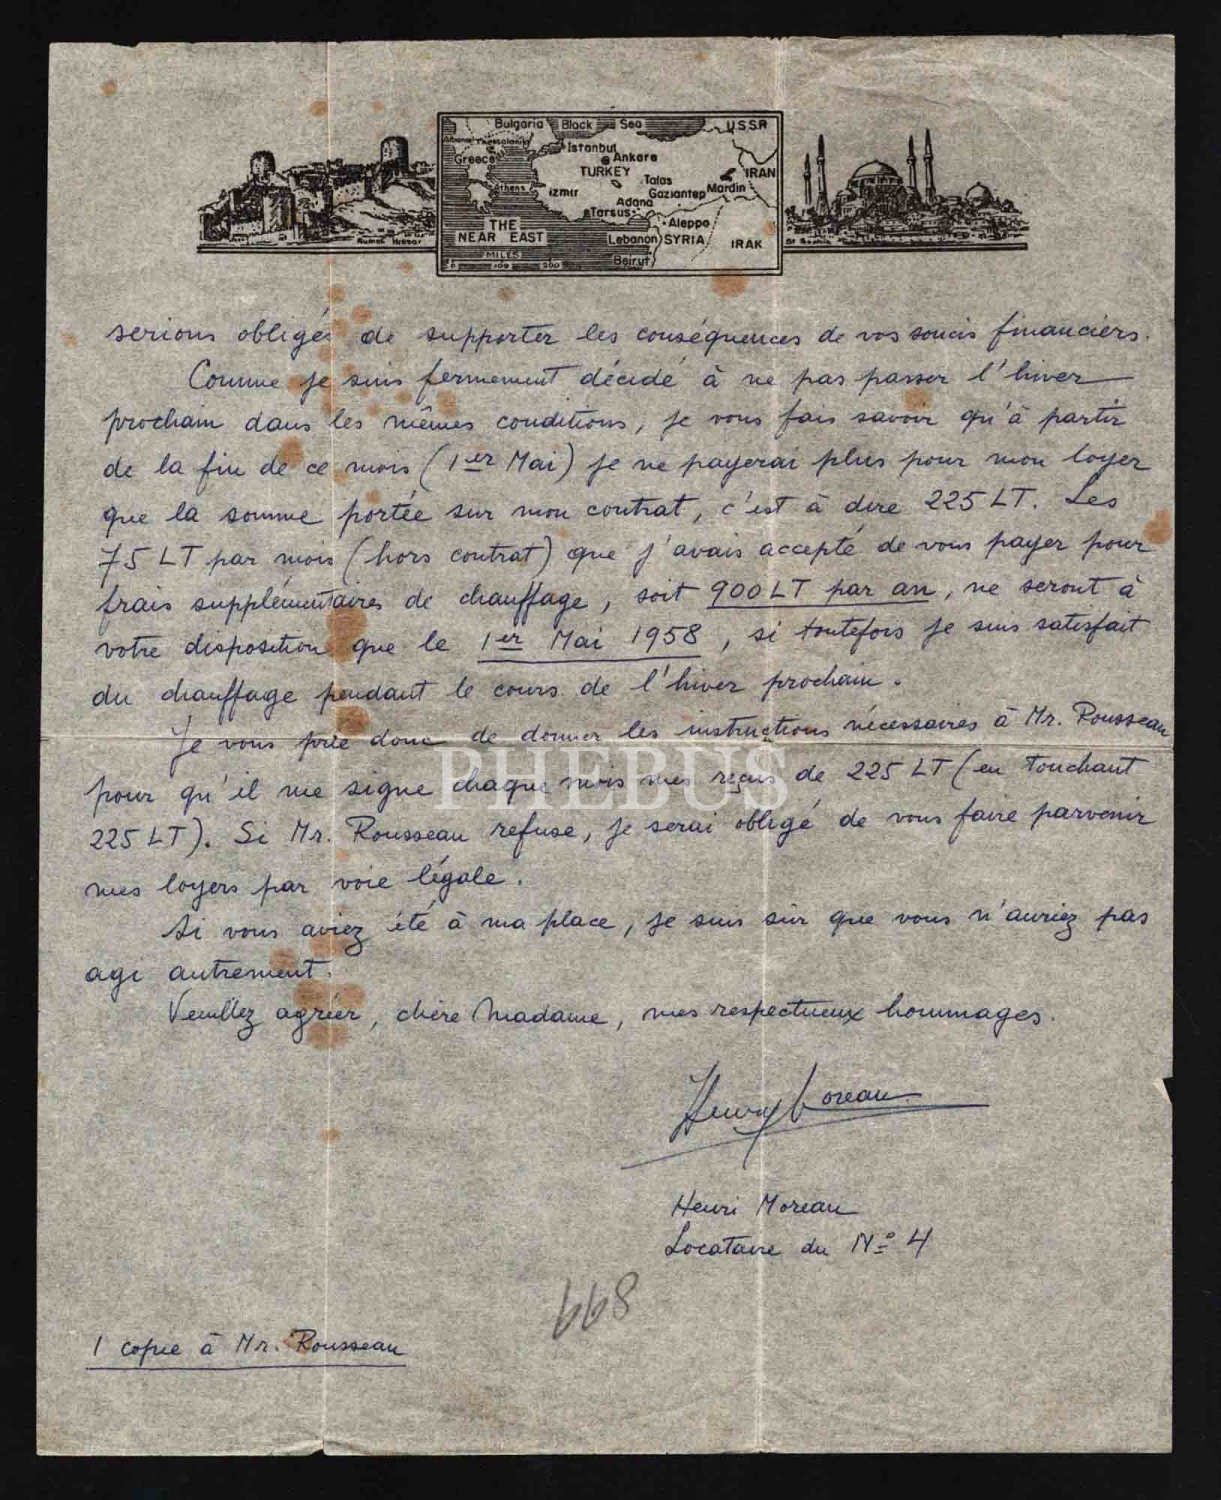 Bulgaria Black Sea U.S.S.R
Albania Thessalonia
Istanbul
Greece Ankara
TURKEY IRAN
Talas
Athens Izmir Gaziantep Mardin
Adana
Tarsus Aleppo
THE
NEAR EAST Lebanon SYRIA IRAK
MILES
0 100 200 Beirut
Rumeli Hissar
St Sophia
serions obligés de supporter les conséquences de vos soucis financiers.
Comme je suis fermement décidé à ne pas passer l'hiver
prochain dans les mêmes conditions, je vous fais savoir qu'à partir
de la fin de ce mois (1er Mai) je ne payerai plus pour mon loyer
que la somme portée sur mon contrat, c'est à dire 225 LT. Les
75 LT par mois (hors contrat) que j'avais accepté de vous payer pour
frais supplémentaires de chauffage, soit 900 LT par an, ne seront à
votre disposition que le 1er Mai 1958, si toutefois je suis satisfait
du chauffage pendant le cours de l'hiver prochain.
Je vous prie donc de donner les instructions nécessaires à Mr. Rousseau
pour qu'il me signe chaque mois mes reçus de 225 LT (en touchant
225 LT). Si Mr. Rousseau refuse, je serai obligé de vous faire parvenir
mes loyers par voie légale.
Si vous aviez été à ma place, je suis sûr que vous n'auriez pas
agi autrement.
Veuillez agréer, chère Madame, mes respectueux hommages.
Henri Moreau
Henri Moreau
Locataire du No 4
668
1 copie à Mr. Rousseau
PHEBUS